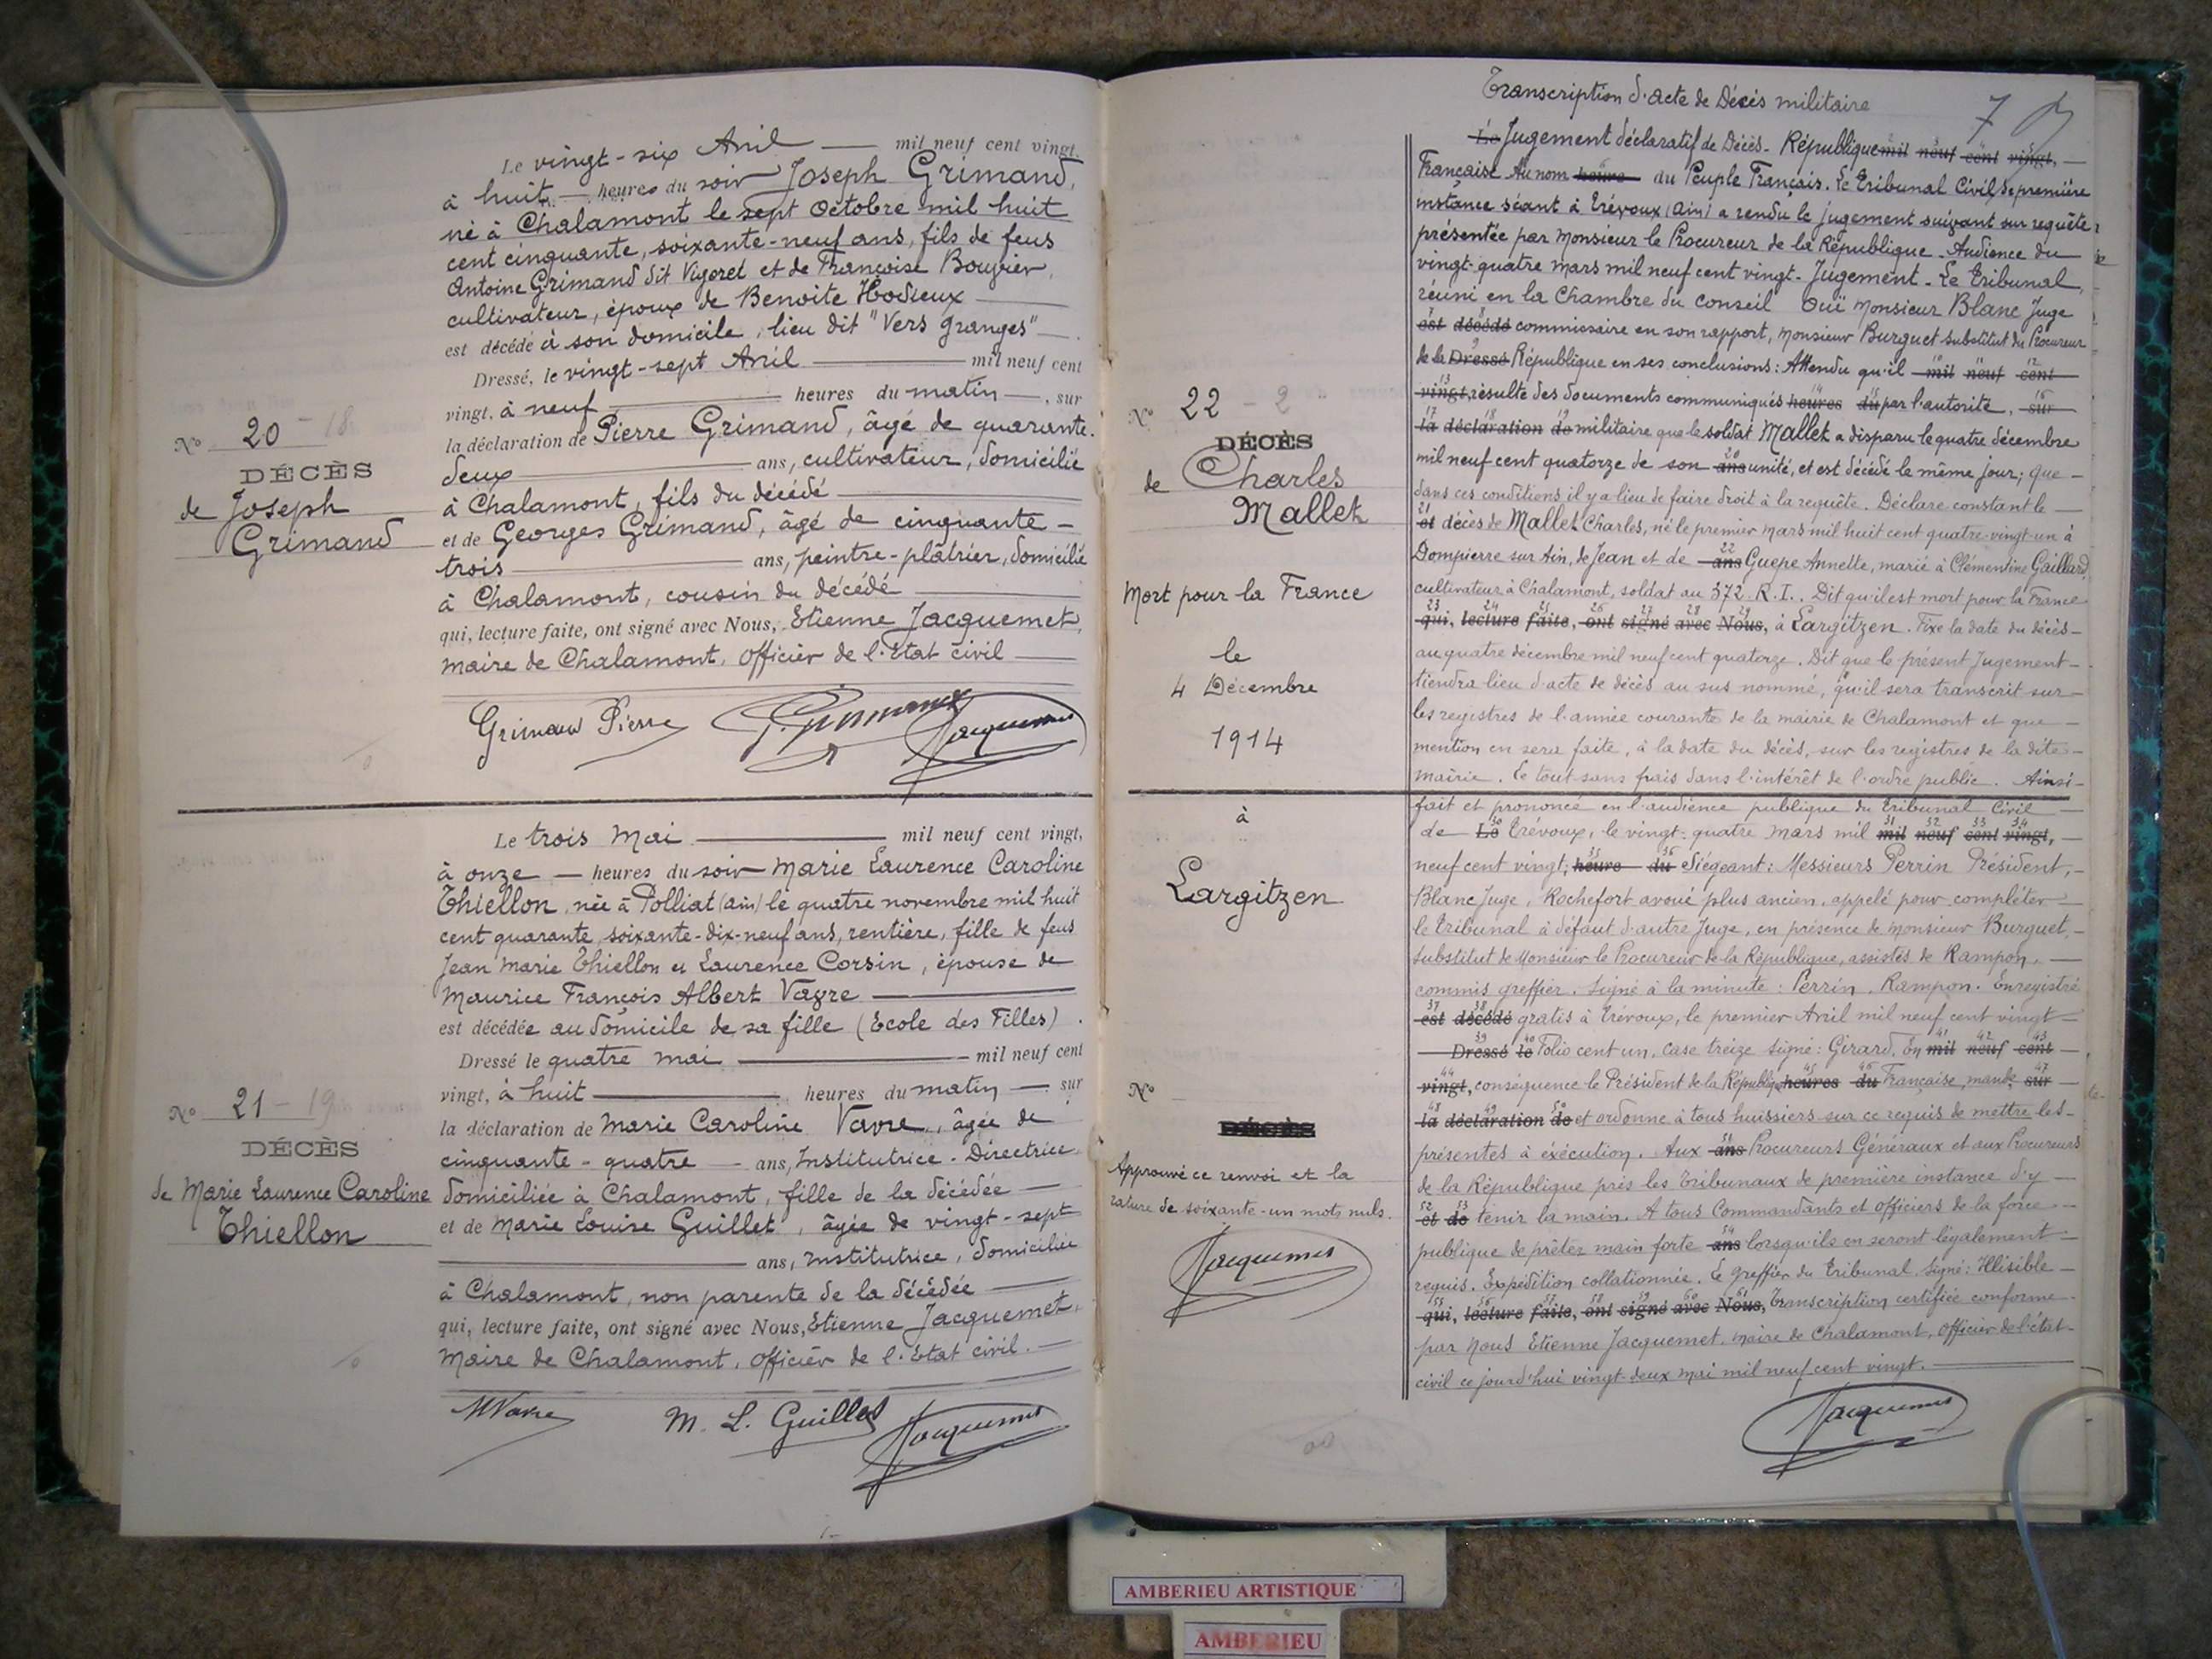 Le vingt-six Avril — mil neuf cent vingt,
à huit — heures du soir Joseph Grimand,
né à Chalamont le sept Octobre mil huit
cent cinquante, soixante-neuf ans, fils de feus
Antoine Grimand dit Vigoret et de Françoise Bouvier,
cultivateur, époux de Benoite Hodieux
est décédé à son domicile, lieu dit "Vers Granges".
Dressé, le vingt-sept Avril — mil neuf cent
vingt, à neuf — heures du matin —, sur
la déclaration de Pierre Grimand, âgé de quarante-
deux — ans, cultivateur, domicilié
à Chalamont, fils du décédé
et de Georges Grimand, âgé de cinquante-
trois — ans, peintre-plâtrier, domicilié
à Chalamont, cousin du décédé
qui, lecture faite, ont signé avec Nous, Etienne Jacquemet,
maire de Chalamont, officier de l'Etat civil
Grimand Pierre Jacquemet
N° 20 - 18
DÉCÈS
de Joseph
Grimand
Le trois Mai — mil neuf cent vingt,
à onze — heures du soir Marie Laurence Caroline
Thiellon, née à Polliat (Ain) le quatre novembre mil huit
cent quarante, soixante-dix-neuf ans, rentière, fille de feus
Jean Marie Thiellon et Laurence Corsin, épouse de
Maurice François Albert Vavre
est décédée au domicile de sa fille (Ecole des Filles).
Dressé le quatre mai — mil neuf cent
vingt, à huit — heures du matin — sur
la déclaration de Marie Caroline Vavre, âgée de
cinquante-quatre — ans, Institutrice-Directrice
domiciliée à Chalamont, fille de la décédée
et de Marie Louise Guillet, âgée de vingt-sept
— ans, Institutrice, domiciliée
à Chalamont, non parente de la décédée
qui, lecture faite, ont signé avec Nous, Etienne Jacquemet,
Maire de Chalamont, officier de l'Etat civil.
M Vavre M. L. Guillet Jacquemet
N° 21 - 19
DÉCÈS
de Marie Laurence Caroline
Thiellon
Transcription d'acte de Décès militaire
7
N° 22 - 2
DÉCÈS
de Charles
Mallet
Mort pour la France
le
4 Décembre
1914
à
Largitzen
N°
DÉCÈS
Approuvé ce renvoi et la
rature de soixante-un mots nuls.
Jacquemet
Le Jugement déclaratif de Décès - République mil neuf cent vingt,
Française Au nom heure du Peuple Français. Le Tribunal Civil de première
instance séant à Trévoux (Ain) a rendu le jugement suivant sur requête
présentée par Monsieur le Procureur de la République. Audience du
vingt-quatre Mars mil neuf cent vingt. Jugement - Le Tribunal,
réuni en la Chambre du conseil Ouï Monsieur Blanc Juge
est décédé commissaire en son rapport, Monsieur Burguet substitut du Procureur
de la Dressé République en ses conclusions: Attendu qu'il mil neuf cent
vingt, résulte des documents communiqués heures du par l'autorité, sur
la déclaration de militaire que le soldat Mallet a disparu le quatre décembre
mil neuf cent quatorze de son ans unité, et est décédé le même jour; que
dans ces conditions il y a lieu de faire droit à la requête. Déclare constant le
et décès de Mallet Charles, né le premier Mars mil huit cent quatre-vingt-un à
Dompierre sur Ain, de Jean et de ans Guepe Annette, marié à Clémentine Gaillard,
cultivateur à Chalamont, soldat au 372. R.I.. Dit qu'il est mort pour la France
qui, lecture faite, ont signé avec Nous, à Largitzen. Fixe la date du décès
au quatre décembre mil neuf cent quatorze. Dit que le présent Jugement
tiendra lieu d'acte de décès au sus nommé, qu'il sera transcrit sur
les registres de l'année courante de la mairie de Chalamont et que
mention en sera faite, à la date du décès, sur les registres de la dite
mairie. Le tout sans frais dans l'intérêt de l'ordre public. Ainsi
fait et prononcé en l'audience publique du Tribunal Civil
de Le Trévoux, le vingt-quatre Mars mil mil neuf cent vingt,
neuf cent vingt, heure du Siégeant: Messieurs Perrin Président,
Blanc Juge, Rochefort avoué plus ancien, appelé pour compléter
le Tribunal à défaut d'autre Juge, en présence de Monsieur Burguet,
substitut de Monsieur le Procureur de la République, assistés de Rampon,
commis greffier. Signé à la minute: Perrin, Rampon. Enregistré
est décédé gratis à Trévoux, le premier Avril mil neuf cent vingt
Dressé le Folio cent un, case treize signé: Girard. En mil neuf cent
vingt, conséquence le Président de la République heures du Française, mande sur
la déclaration de et ordonne à tous huissiers sur ce requis de mettre les
présentes à exécution. Aux ans Procureurs Généraux et aux Procureurs
de la République près les Tribunaux de première instance d'y
et de tenir la main. A tous Commandants et officiers de la force
publique de prêter main forte ans lorsqu'ils en seront légalement
requis. Expédition collationnée. Le greffier du Tribunal. Signé: Illisible
qui, lecture faite, ont signé avec Nous, Transcription certifiée conforme
par Nous Etienne Jacquemet, Maire de Chalamont, officier de l'état
civil ce jourd'hui vingt-deux Mai mil neuf cent vingt.
Jacquemet
AMBERIEU ARTISTIQUE
AMBERIEU